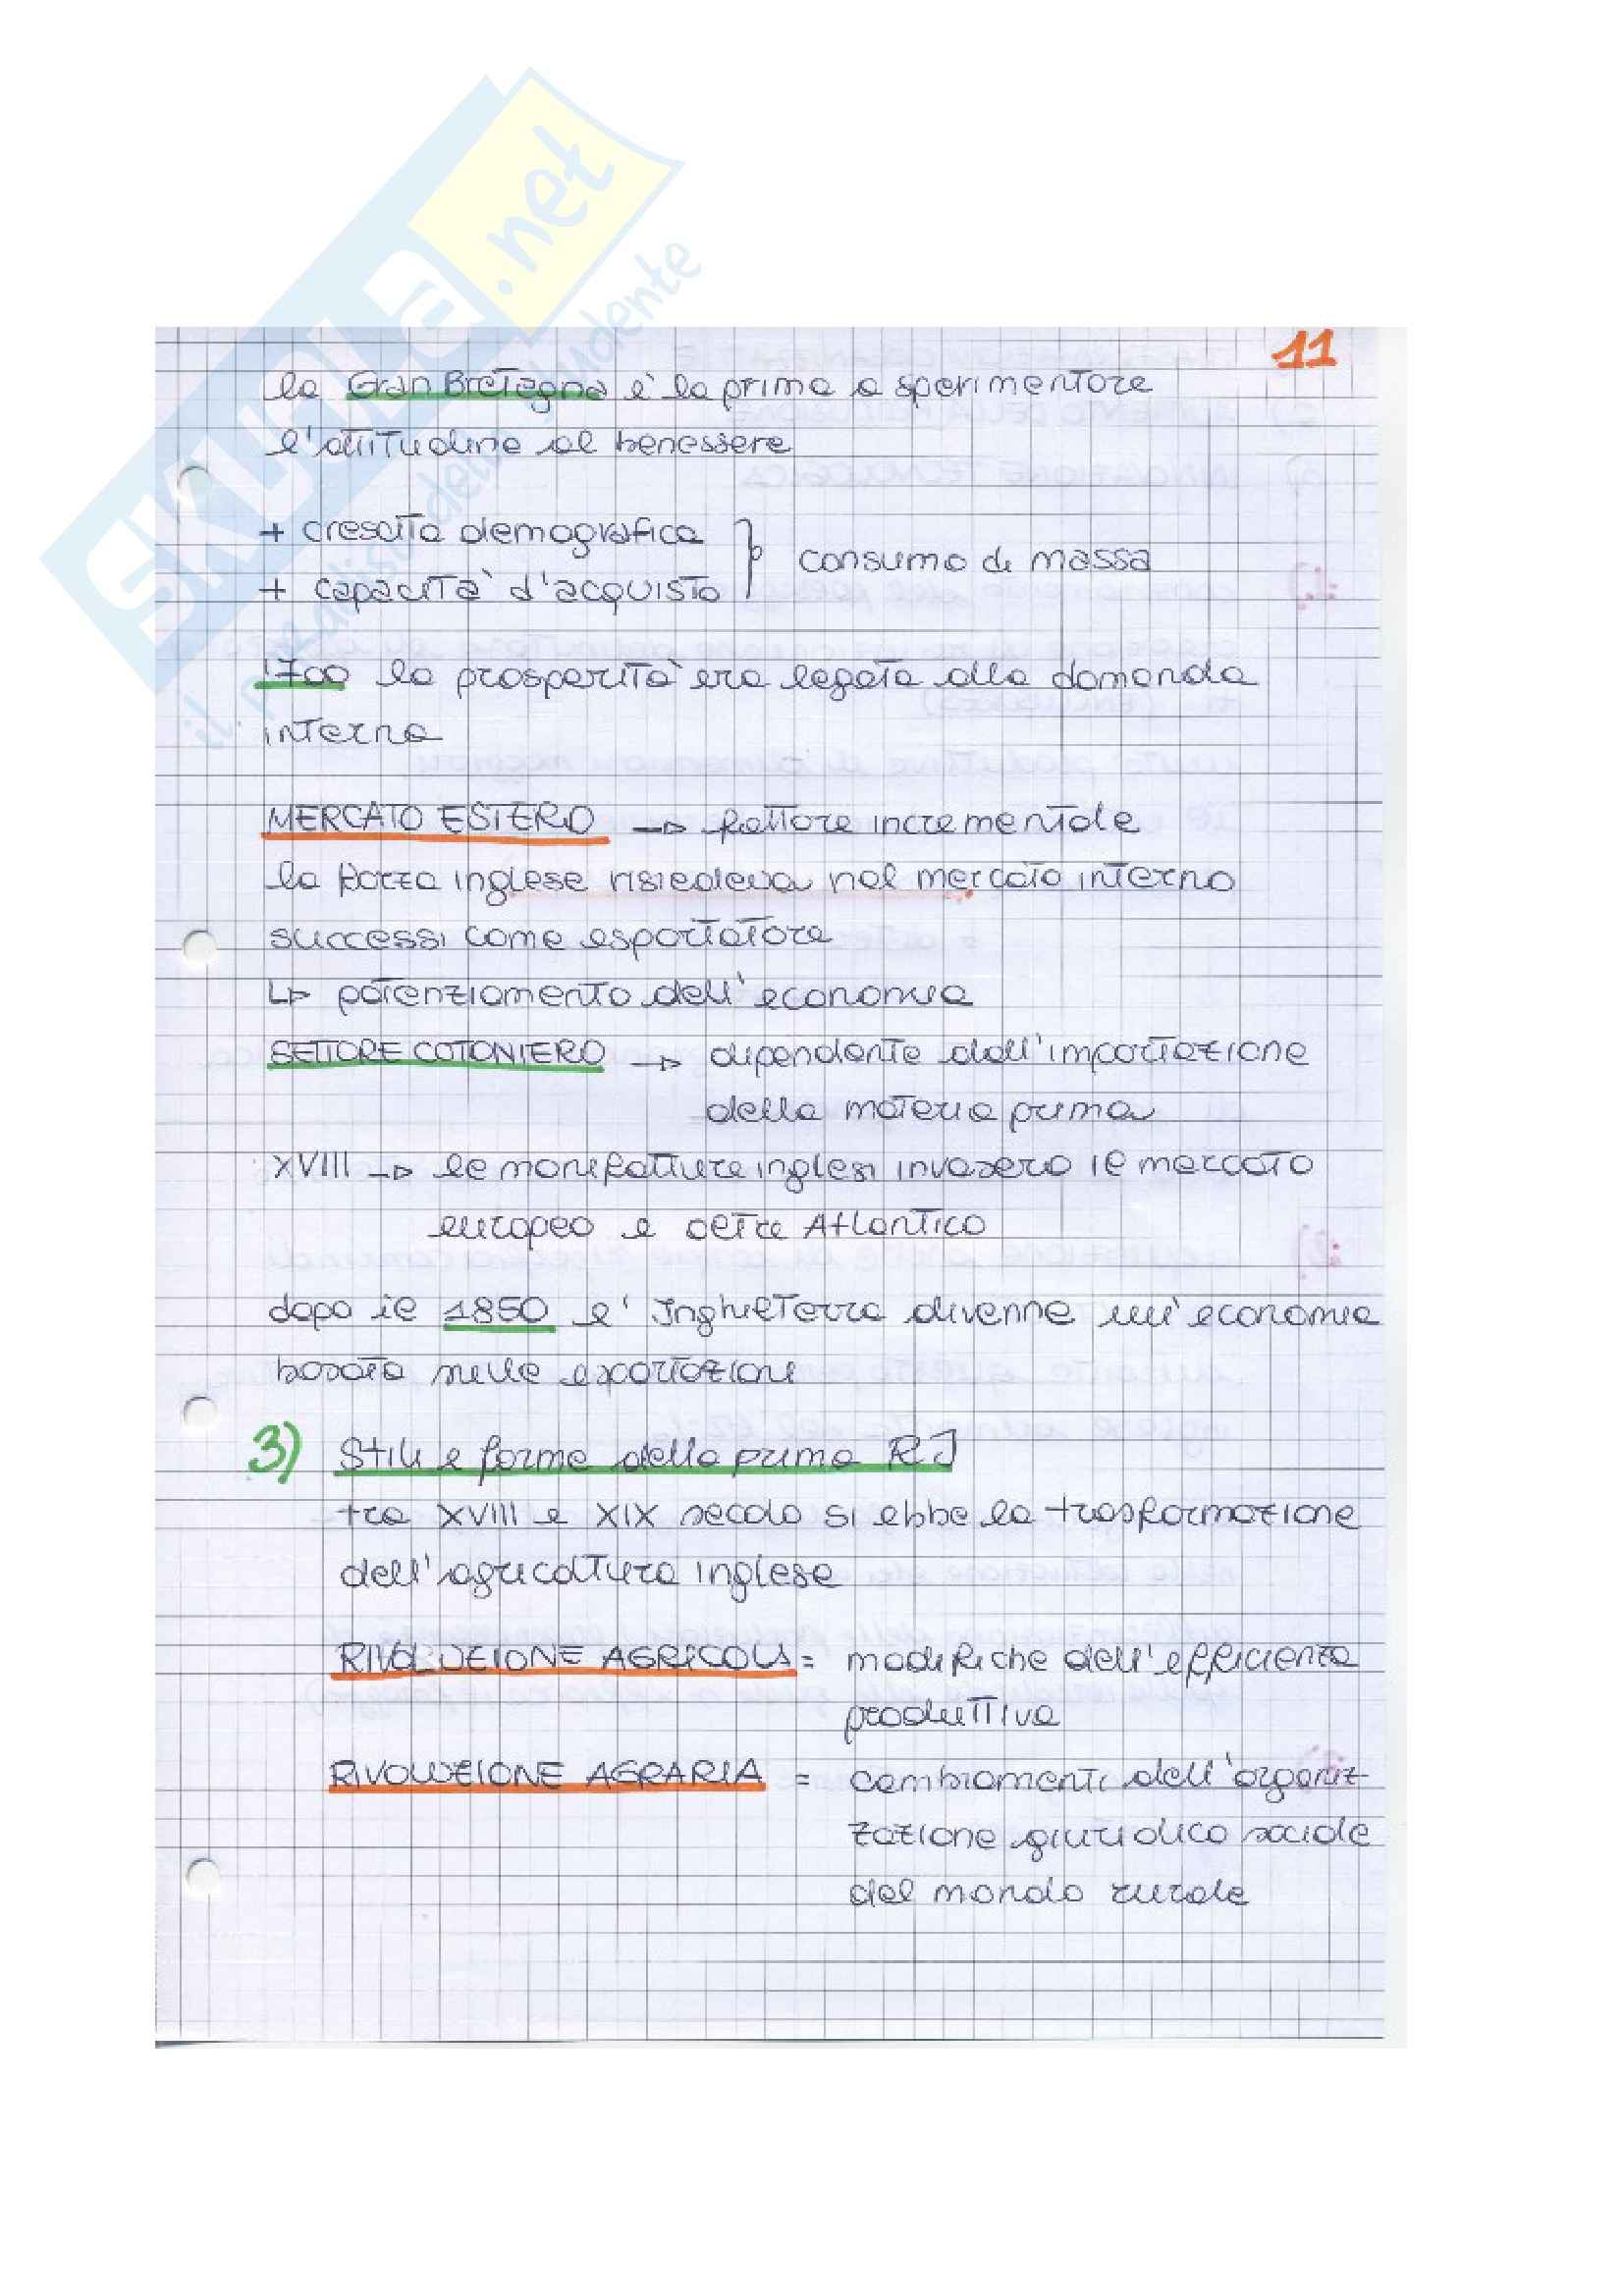 SKUOLA.net
il paradiso dello studente
11
la Gran Bretagna è la prima a sperimentare
l'attitudine al benessere
+ crescita demografica
+ capacità d'acquisto } consumo di massa
'700 la prosperità era legata alla domanda
interna
MERCATO ESTERO → fattore incrementale
la forza inglese risiedeva nel mercato interno
successi come esportatore
↳ potenziamento dell'economia
SETTORE COTONIERO → dipendente dall'importazione
della materia prima
XVIII → le manifatture inglesi invasero il mercato
europeo e oltre Atlantico
dopo il 1850 l'Inghilterra divenne un'economia
basata nelle esportazioni
3) Stili e forme della prima RI
tra XVIII e XIX secolo si ebbe la trasformazione
dell'agricoltura inglese
RIVOLUZIONE AGRICOLA = modifiche dell'efficienza
produttiva
RIVOLUZIONE AGRARIA = cambiamenti dell'organiz-
zazione giuridico sociale
del mondo rurale